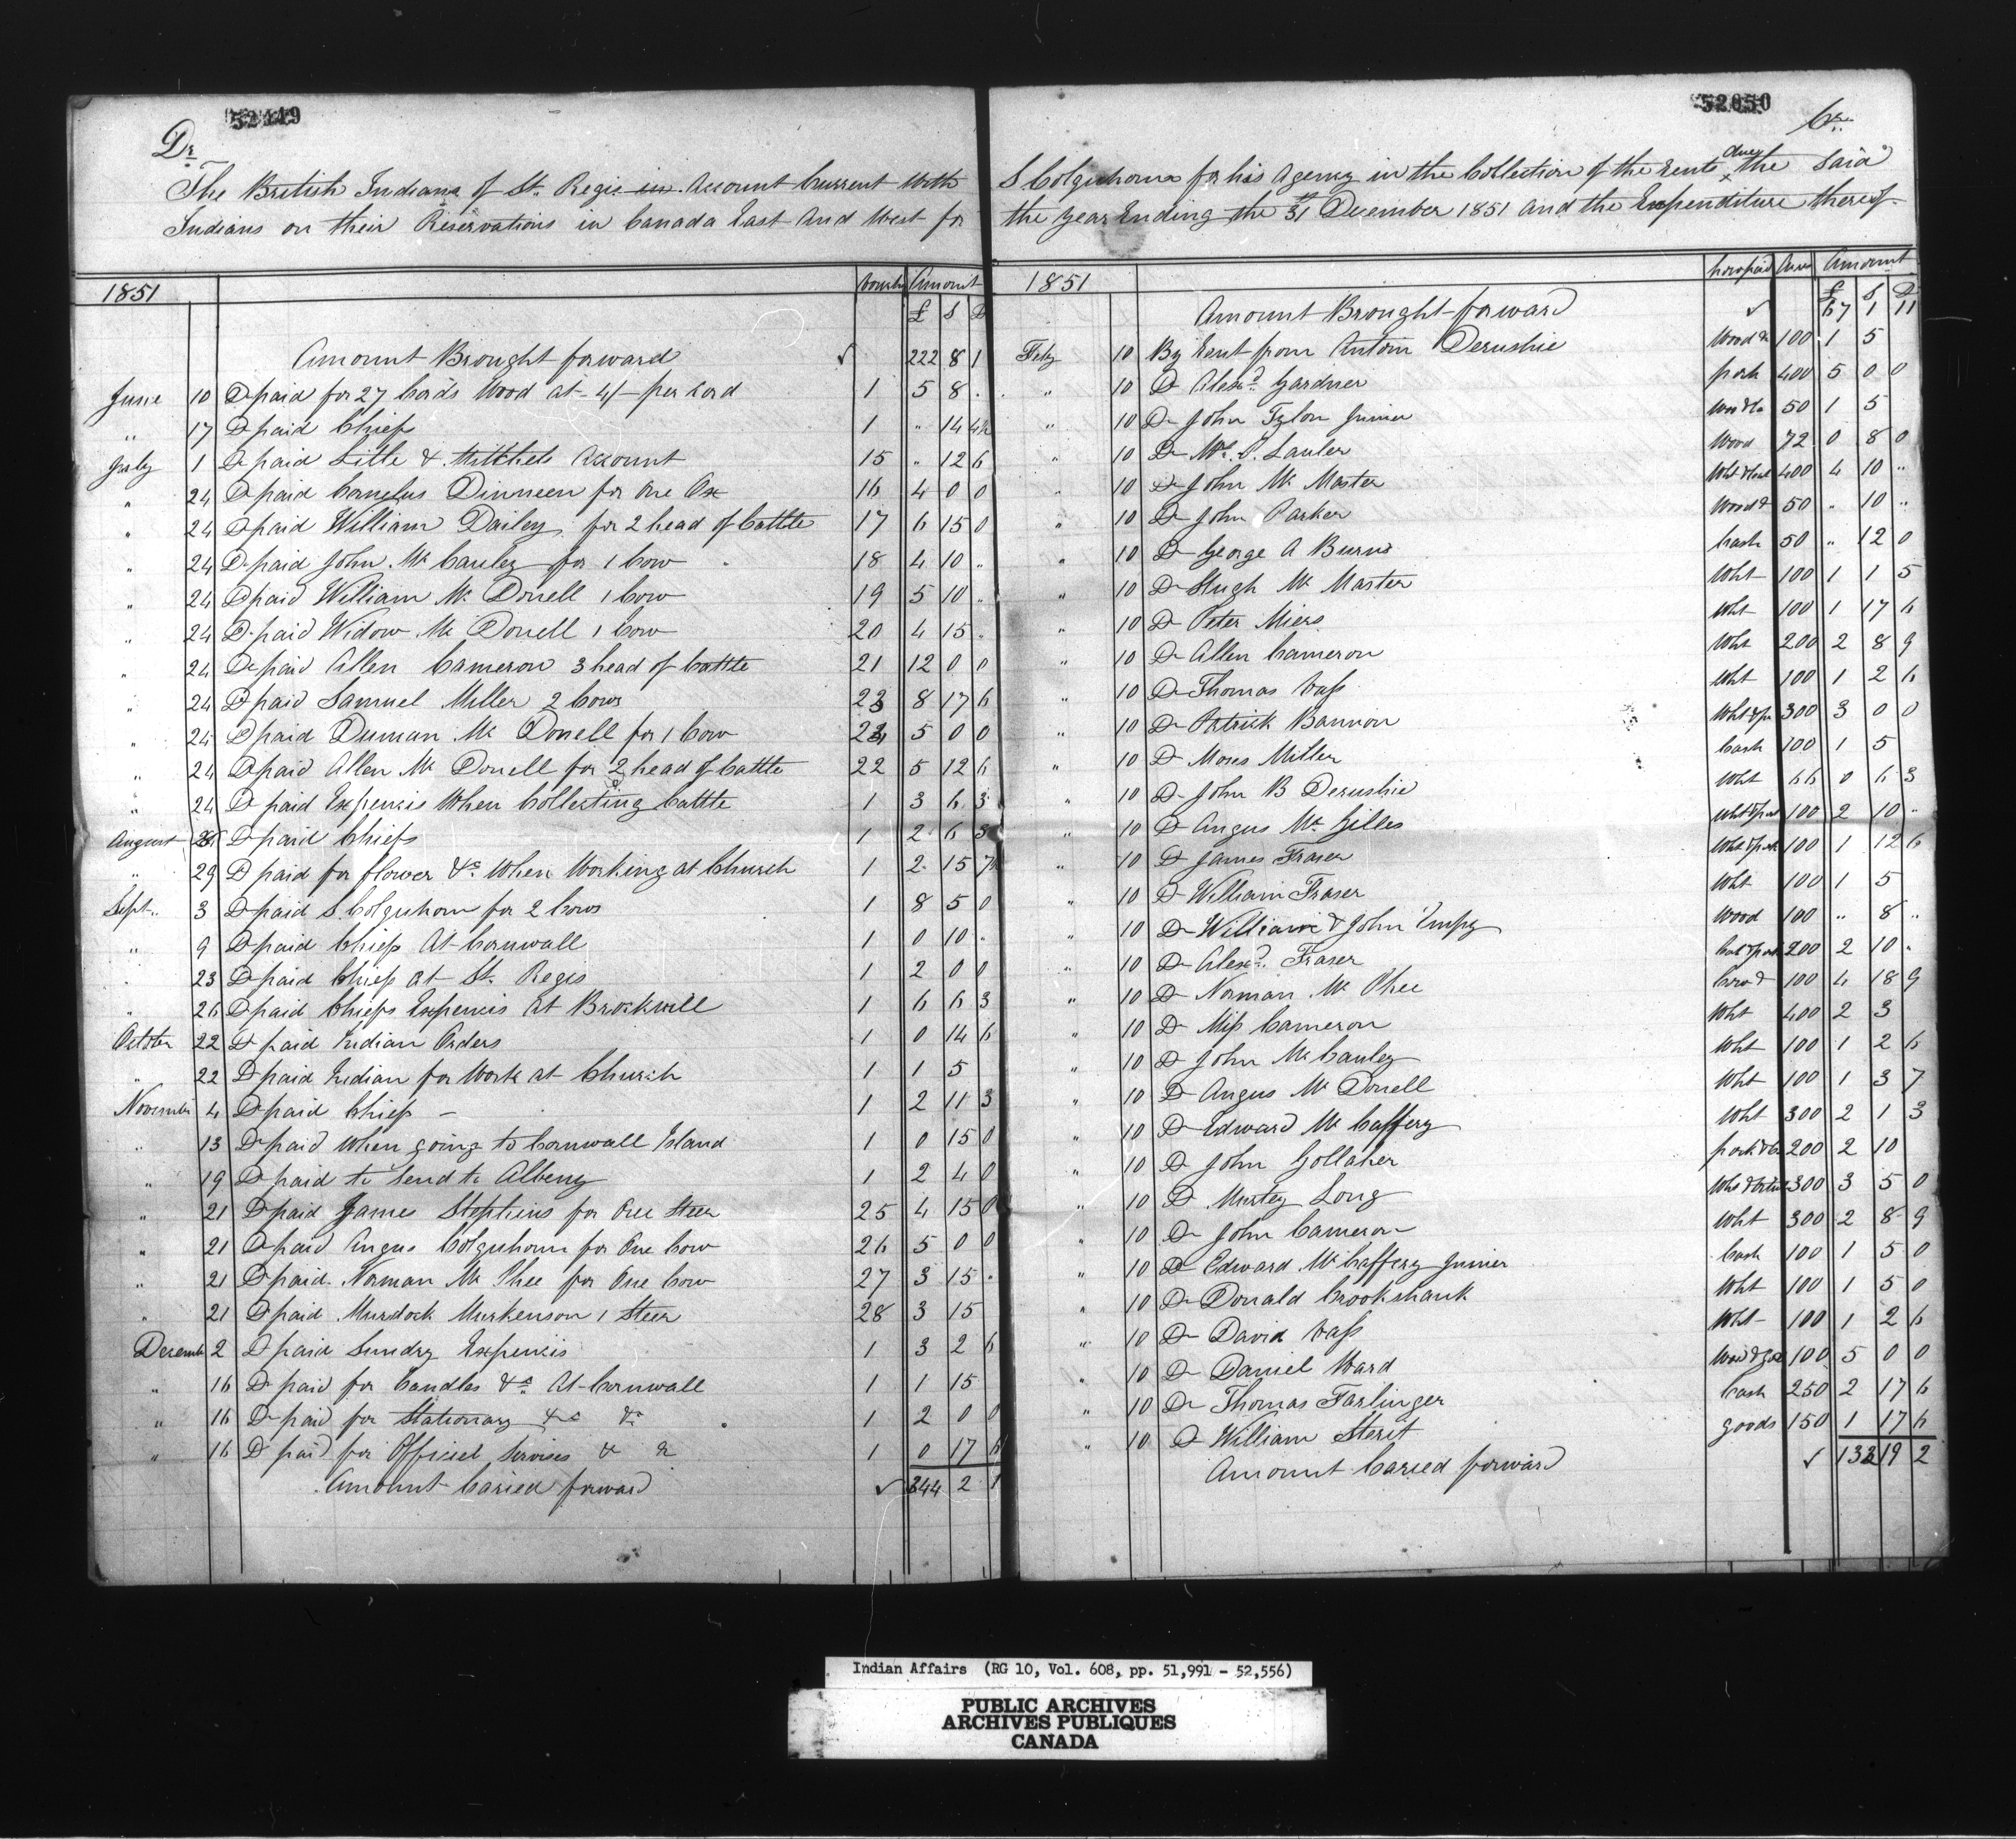 52049
Dr
The British Indians of St. Regis in Account Current With
Indians on their Reservations in Canada East and West for
1851 Amount
£ S D
Amount Brought forward ✓ 222 8 1
June 10 Do paid for 27 Cords Wood at 4/- per Cord 1 5 8 .
" 17 Do paid Chiefs 1 " 14 4½
July 1 Do paid Little & Mitchels Account 15 " 12 6
" 24 Do paid Cornelus Dinneen for One Ox 16 4 0 0
" 24 Do paid William Dailey for 2 head of Cattle 17 6 15 0
" 24 Do paid John Mc Cauley for 1 Cow 18 4 10 "
" 24 Do paid William Mc Donell 1 Cow 19 5 10 "
" 24 Do paid Widow Mc Donell 1 Cow 20 4 15 "
" 24 Do paid Allen Cameron 3 head of Cattle 21 12 0 0
" 24 Do paid Samuel Miller 2 Cows 23 8 17 6
" 24 Do paid Duncan Mc Donell for 1 Cow 24 5 0 0
" 24 Do paid Allen Mc Donell for 2 head of Cattle 22 5 12 6
" 24 Do paid Expencis When Collecting Cattle 1 3 6 3
August 26 Do paid Chiefs 1 2 6 3
" 29 Do paid for flower &c When Working at Church 1 2 15 7½
Sept.. 3 Do paid S. Colquhoun for 2 Cows 1 8 5 0
" 9 Do paid Chiefs At Cornwall 1 0 10 "
" 23 Do paid Chiefs at St. Regis 1 2 0 0
" 26 Do paid Chiefs Expencis At Brockvill 1 6 6 3
October 22 Do paid Indian Orders 1 0 14 6
" 22 Do paid Indian for Work at Church 1 1 5
November 4 Do paid Chiefs 1 2 11 3
" 13 Do paid When going to Cornwall Island 1 0 15 0
" 19 Do paid to Send to Albeny 1 2 4 0
" 21 Do paid James Stephens for One Steer 25 4 15 0
" 21 Do paid Angus Colquhoun for One Cow 26 5 0 0
" 21 Do paid Norman Mc Phee for One Cow 27 3 15 "
" 21 Do paid Murdock Murkenson 1 Steer 28 3 15
December 2 Do paid Sundry Expencis 1 3 2 6
" 16 Do paid for Candles &c At Cornwall 1 1 15
" 16 Do paid for Stationary &c &c 1 2 0 0
" 16 Do paid for Officiel Servises & & 1 0 17 6
Amount Caried forward ✓ 344 2 1
52050
Cr
S Colquhoun for his Agency in the Collection of the Rents Due the Said
the Year Ending the 31st December 1851 and the Expenditure thereof
1851 how paid Acres Amount
£ S D
Amount Brought forward ✓ 67 1 11
Feby 10 By Rent from Antoin Derushie Wood & 100 1 5
" 10 Do Alexd. Gardner pork 400 5 0 0
" 10 Do John Tylon Junior 50 1 5
" 10 Do Lauler Wood 72 0 8 0
" 10 Do John Mc Master 400 4 10 "
" 10 Do John Parker Wood & 50 " 10 "
" 10 Do George A Burns Cash 50 " 12 0
" 10 Do Hugh Mc Master Wht 100 1 1 5
" 10 Do Peter Miers Wht 100 1 17 6
" 10 Do Allen Cameron Wht 200 2 8 9
" 10 Do Thomas Vass Wht 100 1 2 6
" 10 Do Patrick Bannon 300 3 0 0
" 10 Do Moses Miller Cash 100 1 5
" 10 Do John B Derushie Wht 66 0 6 3
" 10 Do Angus Mc Gilles 100 2 10 "
" 10 Do James Fraser Wht & pork 100 1 12 6
" 10 Do William Fraser Wht 100 1 5
" 10 Do William & John Empy Wood 100 " 8 "
" 10 Do Alexd. Fraser 200 2 10 "
" 10 Do Norman Mc Phee 100 4 18 9
" 10 Do Miss Cameron Wht 400 2 3
" 10 Do John Mc Cauley Wht 100 1 2 6
" 10 Do Angus Mc Donell Wht 100 1 3 7
" 10 Do Edward Mc Caffery Wht 300 2 1 3
" 10 Do John Gollaher 200 2 10
" 10 Do Murtey Long 300 3 5 0
" 10 Do John Cameron Wht 300 2 8 9
" 10 Do Edward Mc Caffery Junier Cash 100 1 5 0
" 10 Do Donald Crookshank Wht 100 1 5 0
" 10 Do David Vass Wht 100 1 2 6
" 10 Do Daniel Ward 100 5 0 0
" 10 Do Thomas Farlinger Cash 250 2 17 6
" 10 Do William Sterit goods 150 1 17 6
Amount Caried forward ✓ 133 19 2
Indian Affairs (RG 10, Vol. 608, pp. 51,991 - 52,556)
PUBLIC ARCHIVES
ARCHIVES PUBLIQUES
CANADA